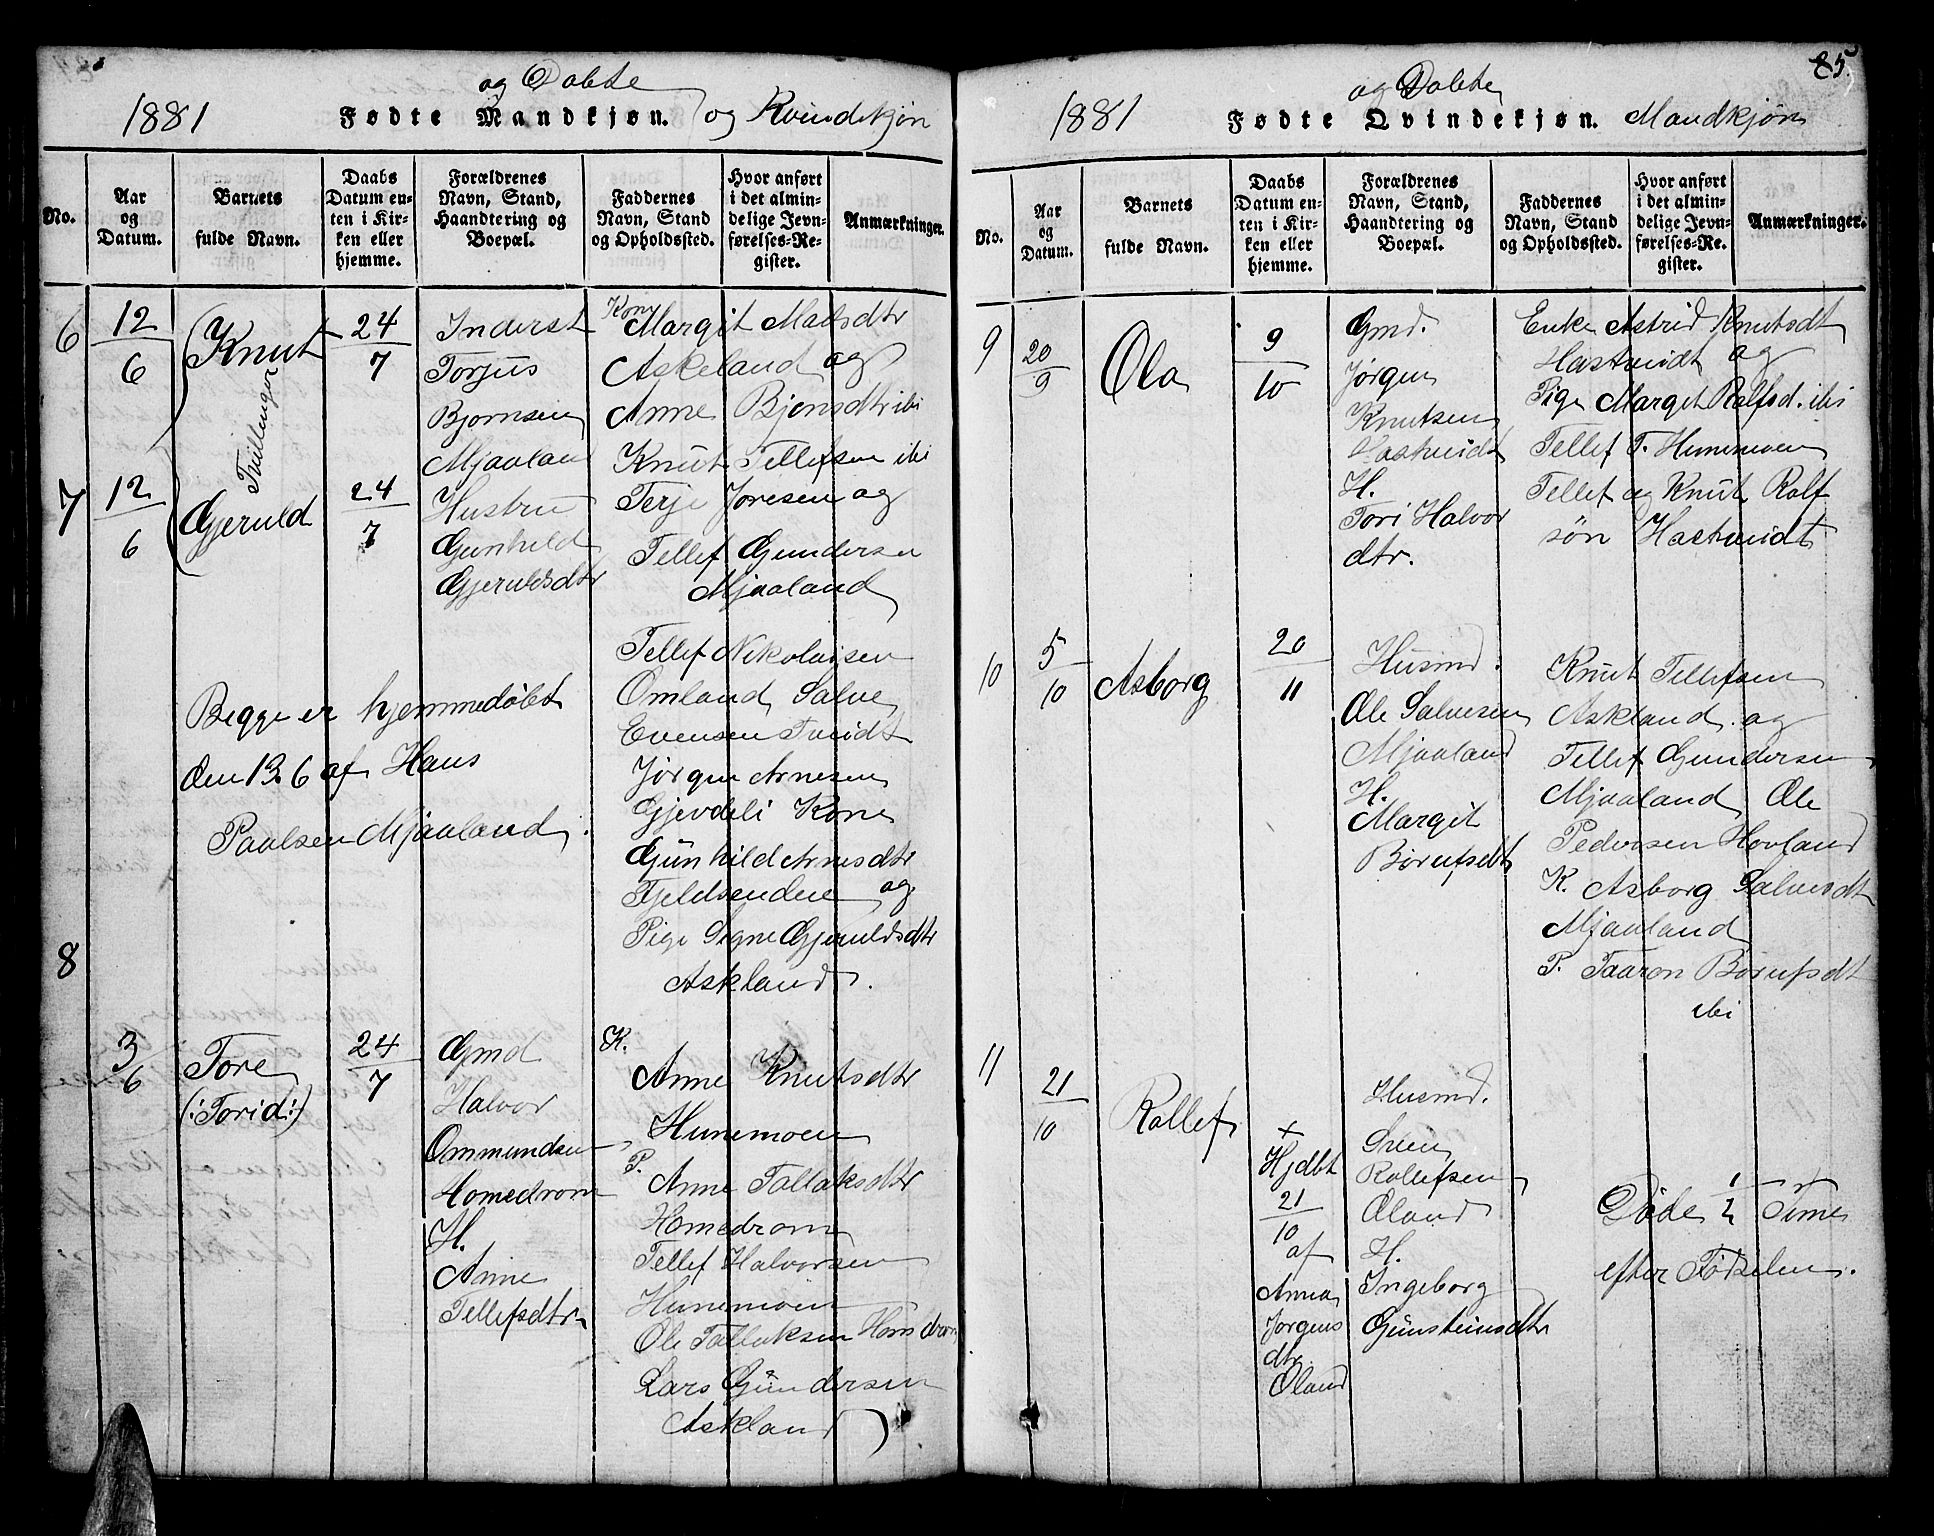 1881
og Døbte
Fødte Mandkjøn. og Kvindekjøn
No.
Aar og Datum.
Barnets fulde Navn.
Daabs Datum enten i Kirken eller hjemme.
Forældrenes Navn, Stand, Haandtering og Boepæl.
Faddernes Navn, Stand og Opholdssted.
Hvor anført i det almindelige Jevnførelses-Register.
Anmærkninger.
6
12/6
Knut
24/7
Inderst
Torjus
Bjornsen
Mjaaland
Tvillinger
7
12/6
Gjeruld
24/7
Hustru
Gunhild
Gjeruldsdtr
Kone Margit Madsdtr
Askeland og
Anne Bjonsdtr ibi
Knut Tellefsen ibi
Terje Joresen og
Tellef Gundersen
Mjaaland
Tellef Nikolaisen
Omland, Salve
Evensen Tveidt
Jørgen Arnesen
Gjevdeli Kone
Gunhild Arnesdtr
Fjeldsendene og
Pige Signe Gjeruldsdtr
Askland.
Begge er hjemmedøbt
den 13.6 af Hans
Paalsen Mjaaland.
8
3/6
Tore
(:Torid:)
24/7
Gmd
Halvor
Ommundsen
Homedrom
H.
Anne
Tellefsdtr
K.
Anne Knutsdtr
Hunemoen
P.
Anne Tallaksdtr
Homedrom
Tellef Halvorsen
Hunemoen
Ole Tallaksen Homdrom
Lars Gundersen
Askland
85.
1881
og Døbte
Fødte Qvindekjøn. Mandkjøn
No.
Aar og Datum.
Barnets fulde Navn.
Daabs Datum enten i Kirken eller hjemme.
Forældrenes Navn, Stand, Haandtering og Boepæl.
Faddernes Navn, Stand og Opholdssted.
Hvor anført i det almindelige Jevnførelses-Register.
Anmærkninger.
9
20/9
Ola
9/10
Gmd.
Jørgen
Knutsen
Hastveidt
H.
Tori Halvor
dtr.
Enke Astrid Knutsdt
Hastveidt og
Pige Marget Rolfsd. ibi
Tellef T. Hunemoen
Tellef og Knut Rolf
søn Hastveidt
10
5/10
Asborg
20/11
Husmd.
Ole Salvesen
Mjaaland
H.
Margit
Børufsdt
Knut Tellefsen
Askland og
Tellef Gundersen
Mjaaland, Ole
Pedersen Hovland
K. Asborg Salvesdt
Mjaaland
P. Taaron Børufsdt
ibi
11
21/10
Rollef
+
Hjdbt
21/10
af
Anna
Jørgens
dtr
Øland
Husmd.
Sven
Rollefsen
Øland
H.
Ingeborg
Gunsteinsdtr
Døde 1/2 Time
efter Fødselen.